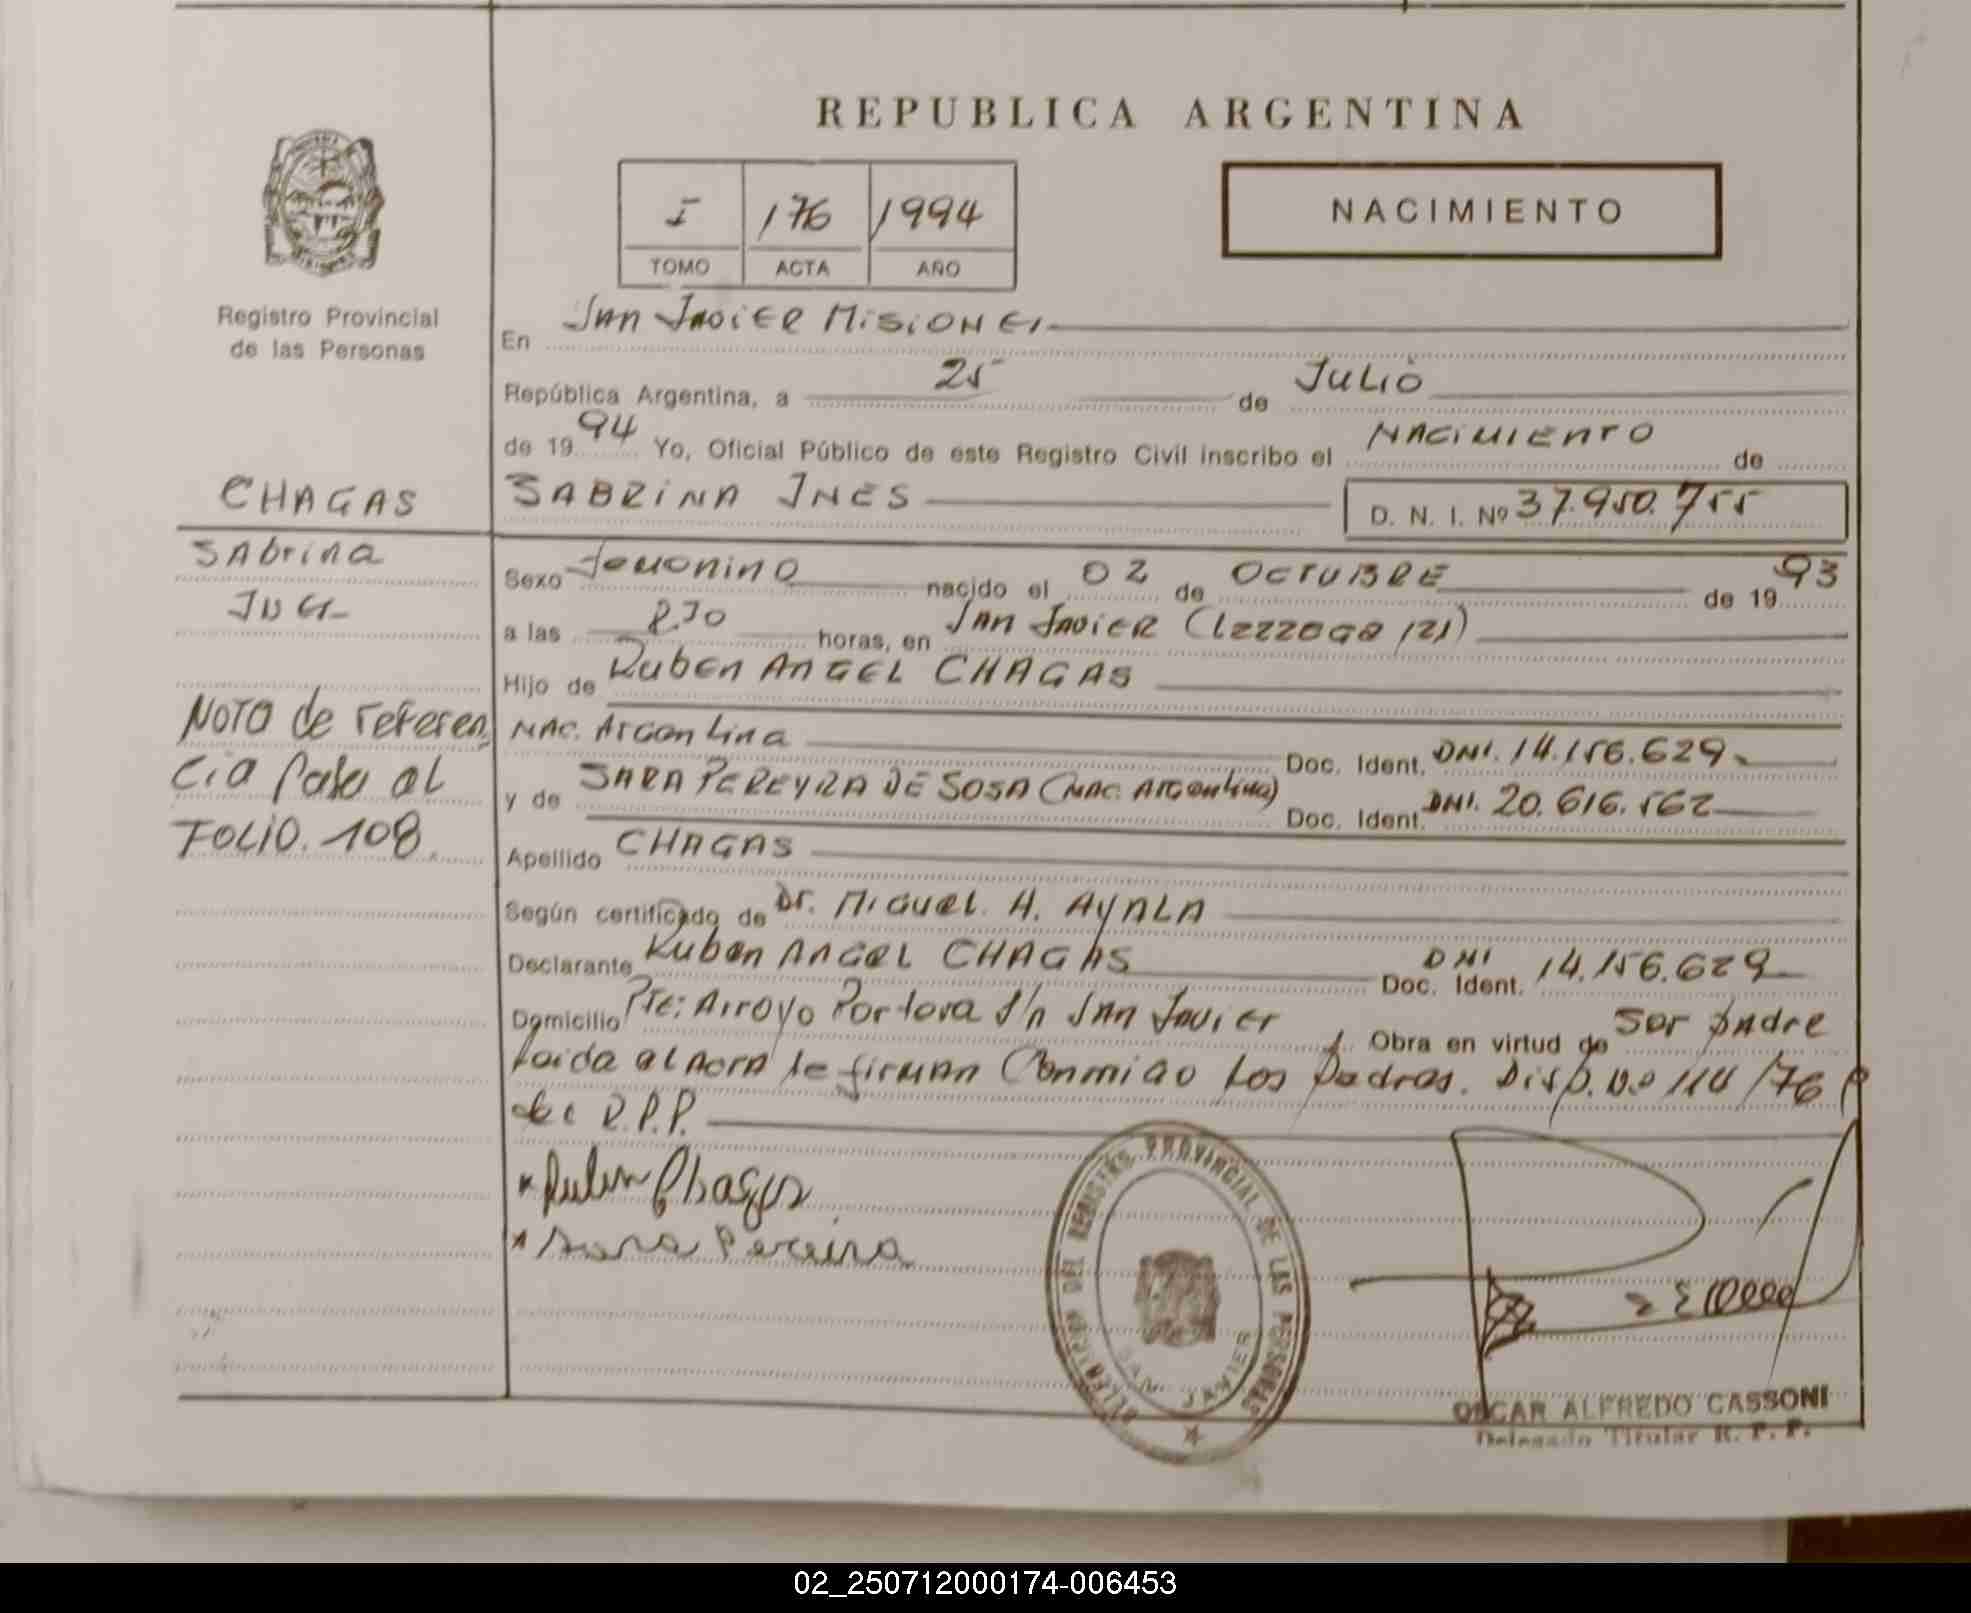 REPUBLICA ARGENTINA
I 176 1994
TOMO ACTA AÑO
NACIMIENTO
Registro Provincial
de las Personas
En San Javier Misiones
República Argentina, a 25 de Julio
de 1994 Yo, Oficial Público de este Registro Civil inscribo el NACIMIENTO de
SABRINA INES D. N. I. Nº 37.950.755
CHAGAS
Sabrina
Nota de referen
cia Paso al
FOLIO. 108.
Sexo Femenino nacido el 02 de OCTUBRE de 1993
a las horas, en San Javier
Hijo de Ruben ANGEL CHAGAS
NAC. Argentina Doc. Ident. DNI. 14.156.629
y de SARA PEREYRA DE SOSA (NAC. Argentina) Doc. Ident. DNI. 20.616.562
Apellido CHAGAS
Según certificado de Dr. Miguel. A. AYALA
Declarante Ruben ANGEL CHAGAS Doc. Ident. DNI 14.156.629
Domicilio Pje: Arroyo Portera S/n San Javier Obra en virtud de Ser padre
Leida al Acta la firman Conmigo Los Padres. Disp. /76
del R.P.P.
Ruben Chagas
Sara Pereira
DELEGACION DEL REGISTRO PROVINCIAL DE LAS PERSONAS
SAN JAVIER
OSCAR ALFREDO CASSONI
Delegado Titular R. P. P.
02_250712000174-006453